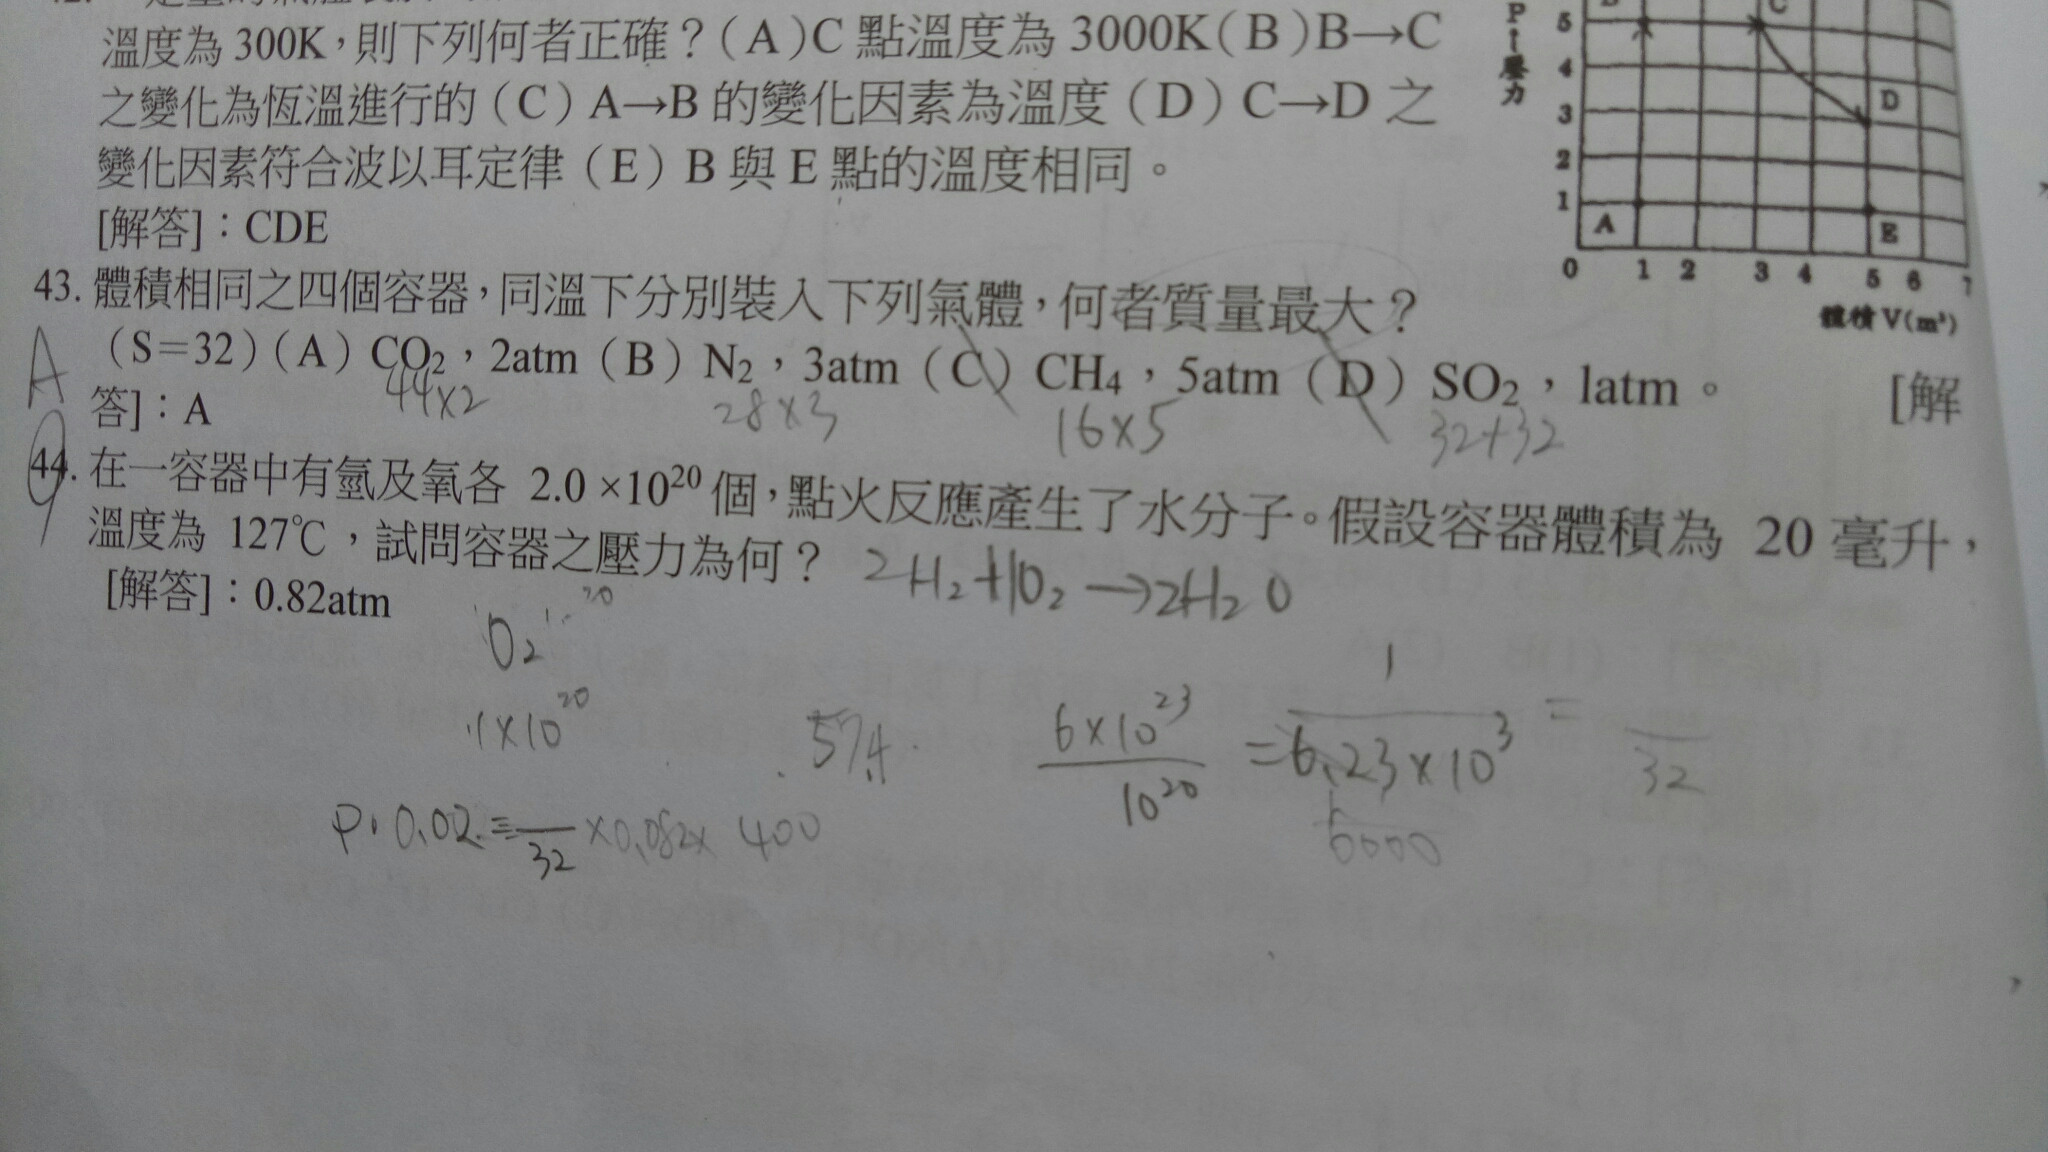 溫度為 300K，則下列何者正確？(A)C 點溫度為 3000K(B)B→C
之變化為恆溫進行的(C)A→B 的變化因素為溫度(D)C→D 之
變化因素符合波以耳定律(E)B 與 E 點的溫度相同。
[解答]：CDE
P↑壓力
5
4
3
2
1
C
D
A
E
0 1 2 3 4 5 6 7
體積 V(m³)
43. 體積相同之四個容器，同溫下分別裝入下列氣體，何者質量最大？
A
(S=32)(A) CO₂，2atm (B) N₂，3atm (C) CH₄，5atm (D) SO₂，1atm。 [解
44×2 28×3 16×5 32+32
答]：A
44. 在一容器中有氫及氧各 2.0 ×10²⁰ 個，點火反應產生了水分子。假設容器體積為 20 毫升，
溫度為 127℃，試問容器之壓力為何？ 2H₂+1O₂→2H₂O
[解答]：0.82atm
O₂
1×10²⁰
574
6×10²³
10²⁰
=
1
6.23×10³
=
32
1
6000
P·0.02=
32
×0.082×400